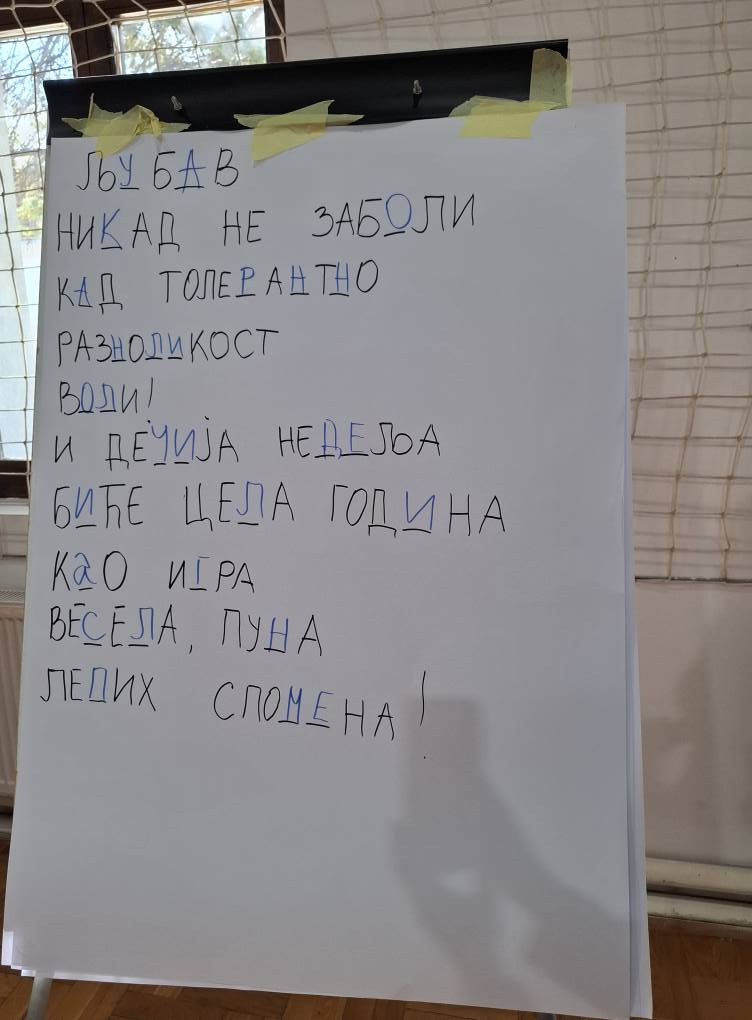 ЉУБАВ
НИКАД НЕ ЗАБОЛИ
КАД ТОЛЕРАНТНО
РАЗНОЛИКОСТ
ВОЛИ!
И ДЕЧИЈА НЕДЕЉА
БИЋЕ ЦЕЛА ГОДИНА
КАО ИГРА
ВЕСЕЛА, ПУНА
ЛЕПИХ СПОМЕНА!